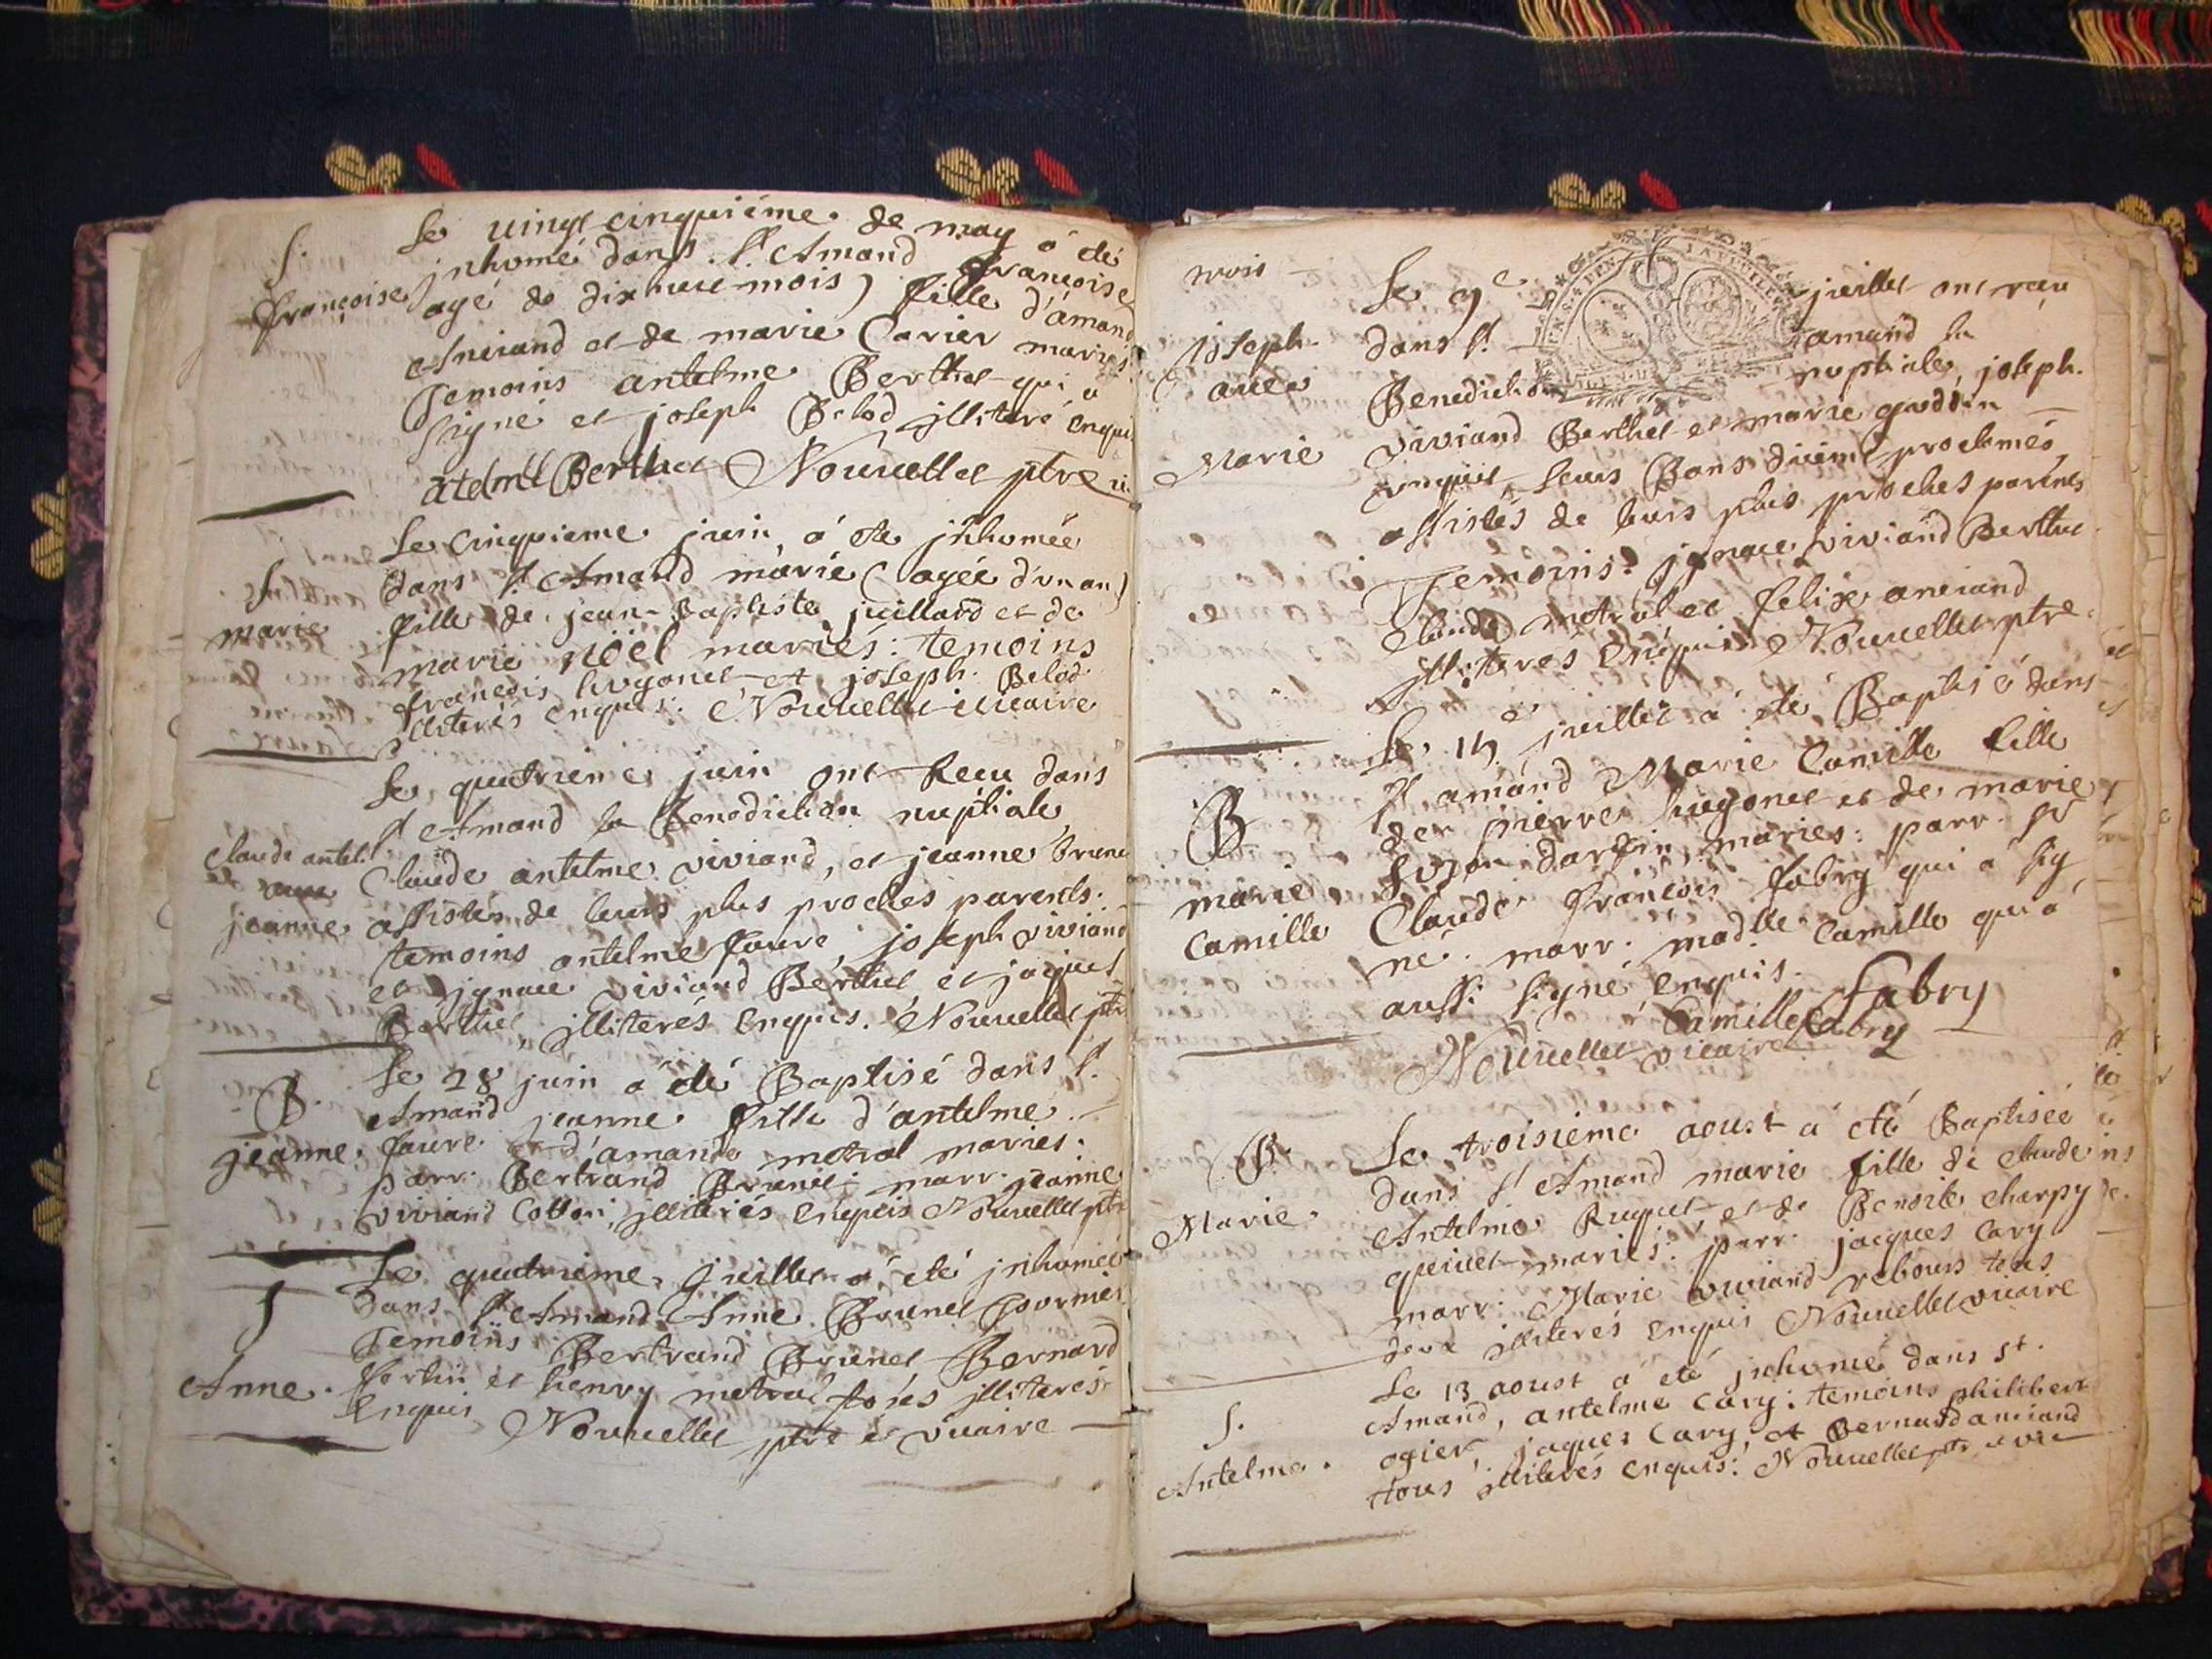 S.
françoise
Le vingt cinquiéme de may a été
jnhumé dans St Amand françoise
agé de dix neuf mois) fille d'amand
Aneiand et de marie Carier mariés
Temoins antelme Berthet qui a
signé et joseph Belod illiteré enquis
Berthet Nouuellet ptre
Le cinquieme juin a ete jnhumée
S
marie
dans St Amand marie (agée d'vn an)
fille de jean-Baptiste juillard et de
marie nöel mariés: temoins
francois hugonet et joseph Belod
illiterés enquis: Nouuellet vicaire
Le quatrieme juin ont Receu dans
St Amand la Benediction nuptiale
Claude antel.
jeanne
Claude antelme viviand, et jeanne brunet
assistés de leurs plus proches parents.
temoins antelme faure, joseph viviand
et jgnace viviand Berthet et jaques
Berthet, jlliterés enquis. Nouuellet ptre
B.
jeanne.
Le 28 juin a été Baptisé dans St.
Amand jeanne fille d'antelme
faure et d'amanda metral maries.
parr. Bertrand Brunet marr. jeanne
viviand Cotton jlliterés enquis Nouuellet ptre
S
Anne.
Le quatrieme juillet a été jnhumée
dans St Amand Anne Brunet
Temoins Bertrand Brunet Bernard
et henry metral tous jlliterés
enquis Nouuellet ptre et vicaire
joseph
auec
Marie
Le 9e juillet ont receu
dans St. amand la
Benediction nuptiale, joseph
viviand Berthet et marie
enquis leurs Bans duement proclamés
assistés de leurs plus proches parents
Temoins: jgnace viviand Berthet
Claude metral et felix aneiand
jlliteres enquis Nouuellet ptre.
Le juillet a été Baptisé dans
B
marie
Camille
St amand Marie Camille fille
de pierre hugonet et de marie
mariés: parr. Sr
Claude françois fabry qui a sig
né. marr. madlle Camille qui a
aussi signé enquis.
Fabry
Camille fabry
Nouuellet vicaire
B.
Marie.
Le troisieme aoust a eté Baptisée
dans St Amand marie fille de claude
Antelme Ruquet et de Benoite charpy
mariés: parr. jacques Cary
marr: Marie viviand rebours tous
deux jlliterés enquis Nouuellet vicaire
S.
Antelme.
Le 13 aoust a eté jnhumé dans St.
Amand, antelme Cary: temoins philibert
ogier, jaques Cary, et Bernard aneiand
tous jlliterés enquis: Nouuellet ptre et vic